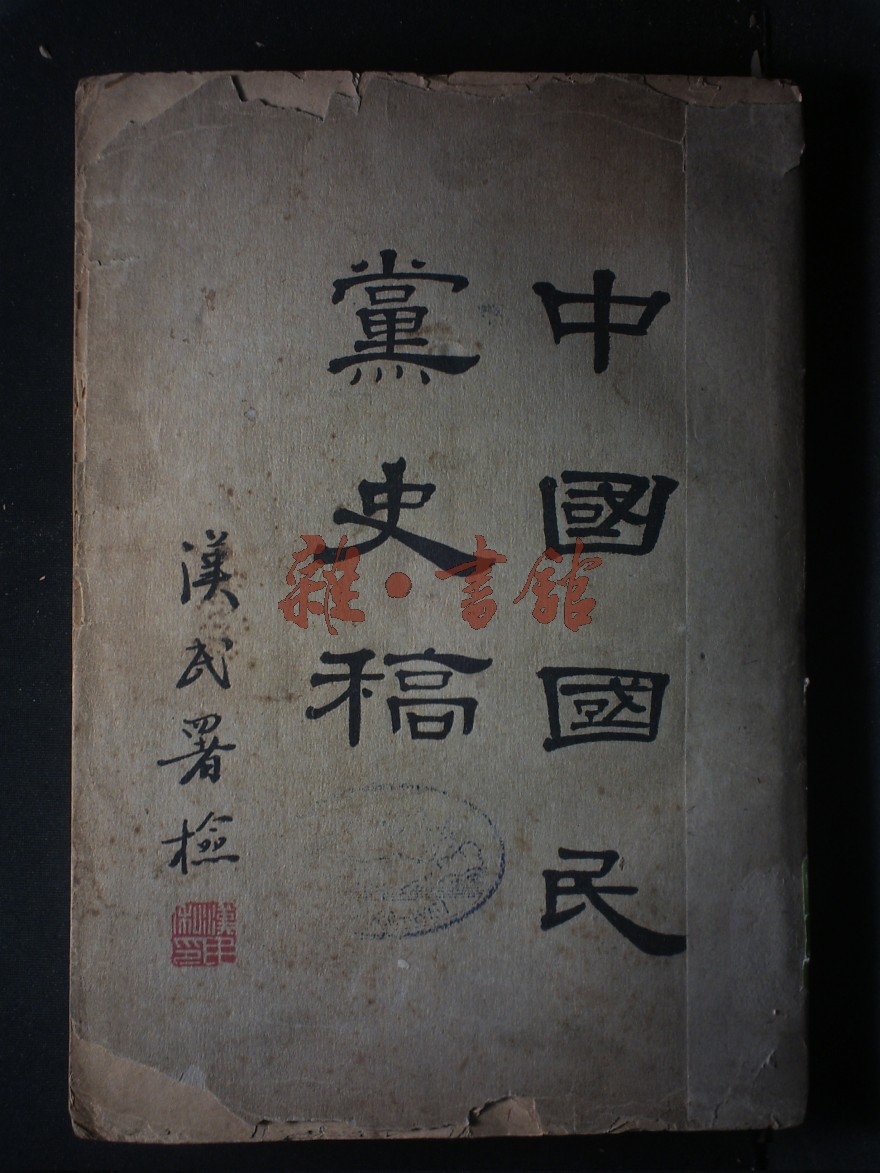 中國國民
黨史稿
漢民署檢
雜·書館